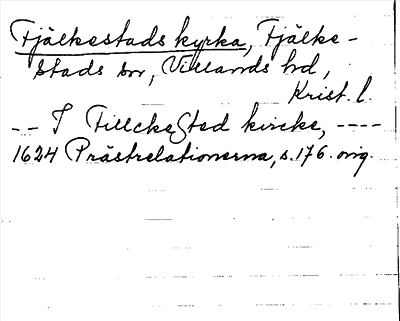 Fjälkestads kyrka, Fjälke-
stads sn, Villands hd,
Krist. l.
-- I FillckeSted kircke, ----
1624 Prästrelationerna, s. 176. orig.